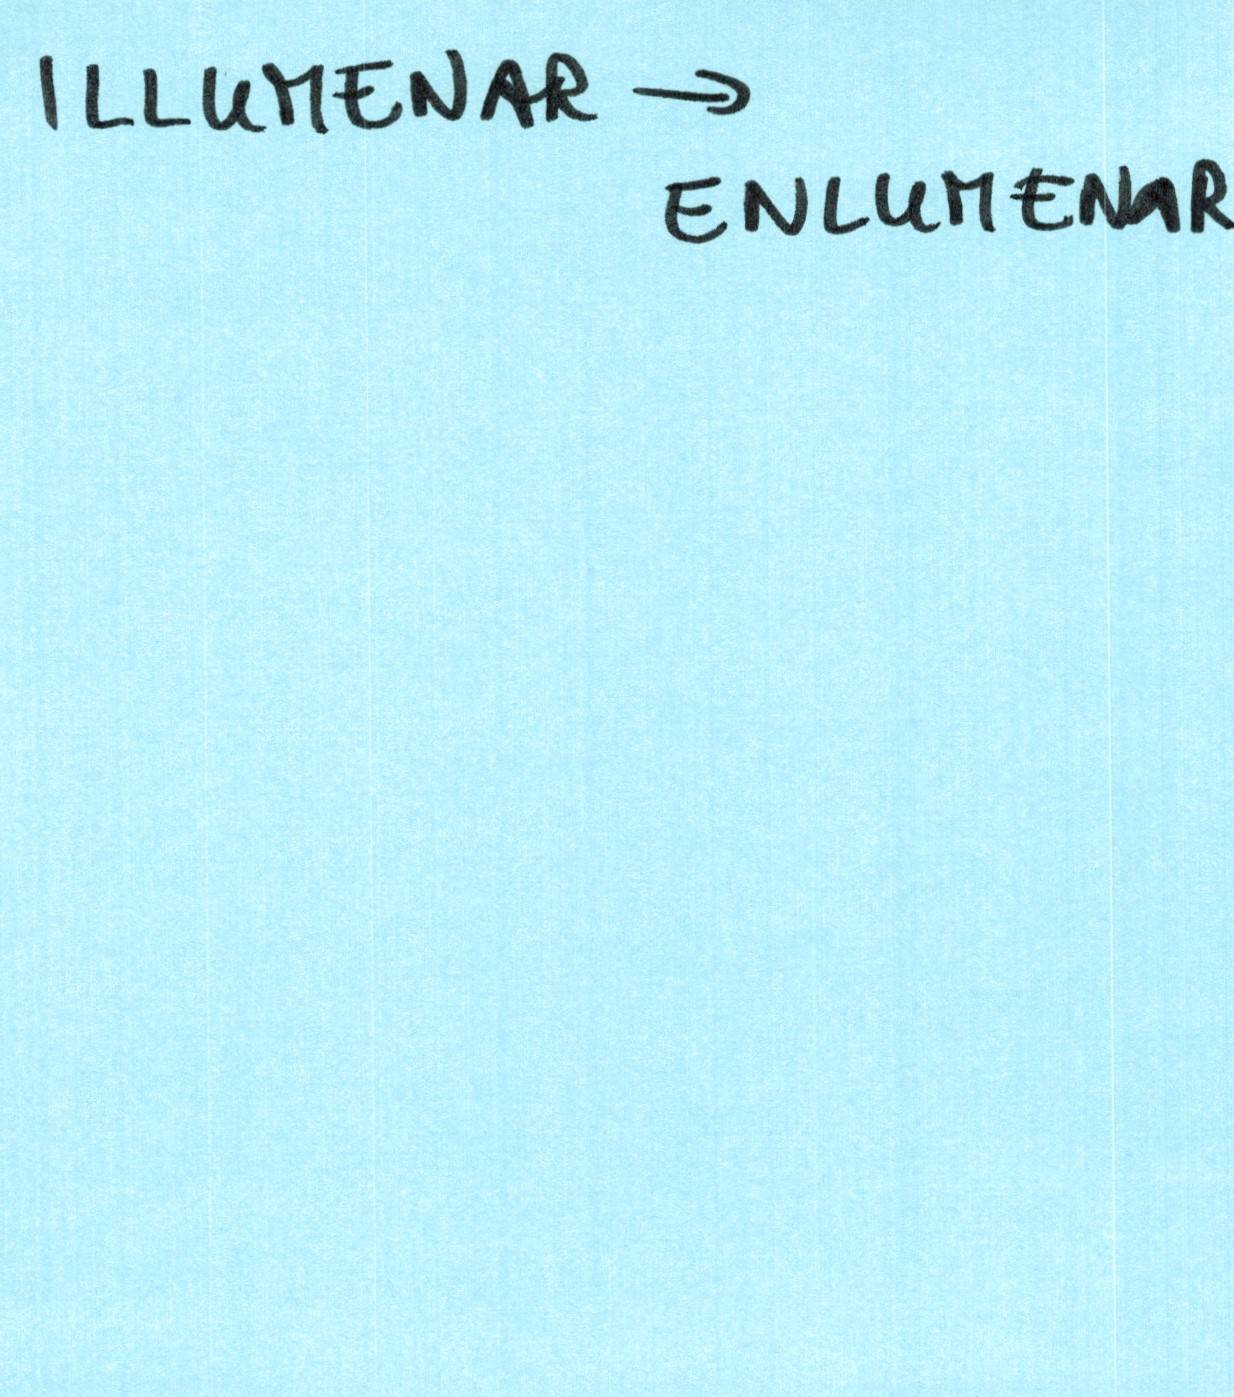 ILLUMENAR →
ENLUMENAR